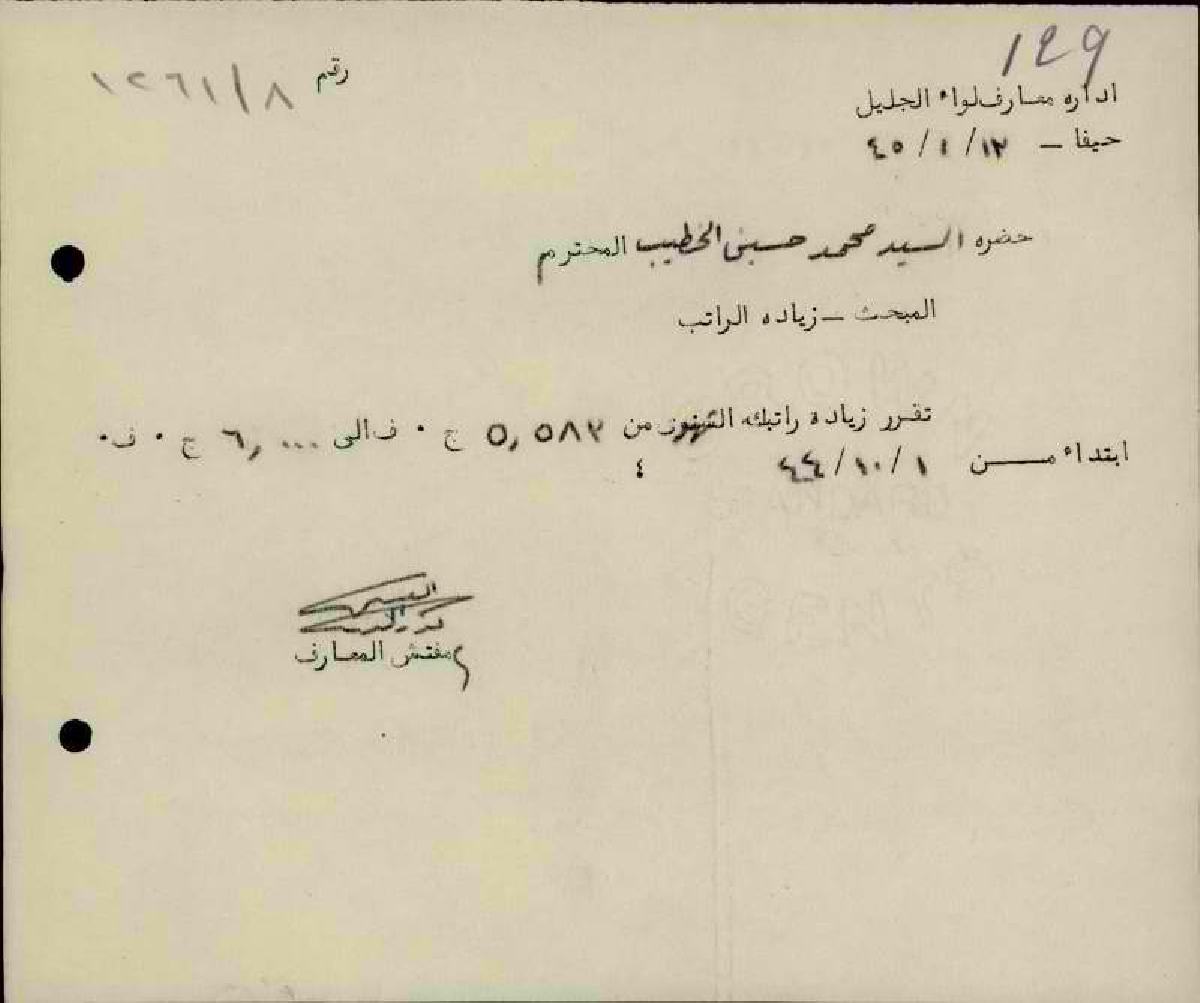 129
رقم ١٢٦١/٨
اداره معارف لواء الجليل
حيفا – ١٢/١/٤٥
حضره السيد محمد حسين الخطيب المحترم
المبحث – زياده الراتب
تقرر زيادة راتبك الشهري من ٥,٥٨٣ ج ٠ ف الى ٦,٠٠٠ ج ٠ ف٠
ابتداء من ١/١٠/٤٤
٤
مفتش المعارف